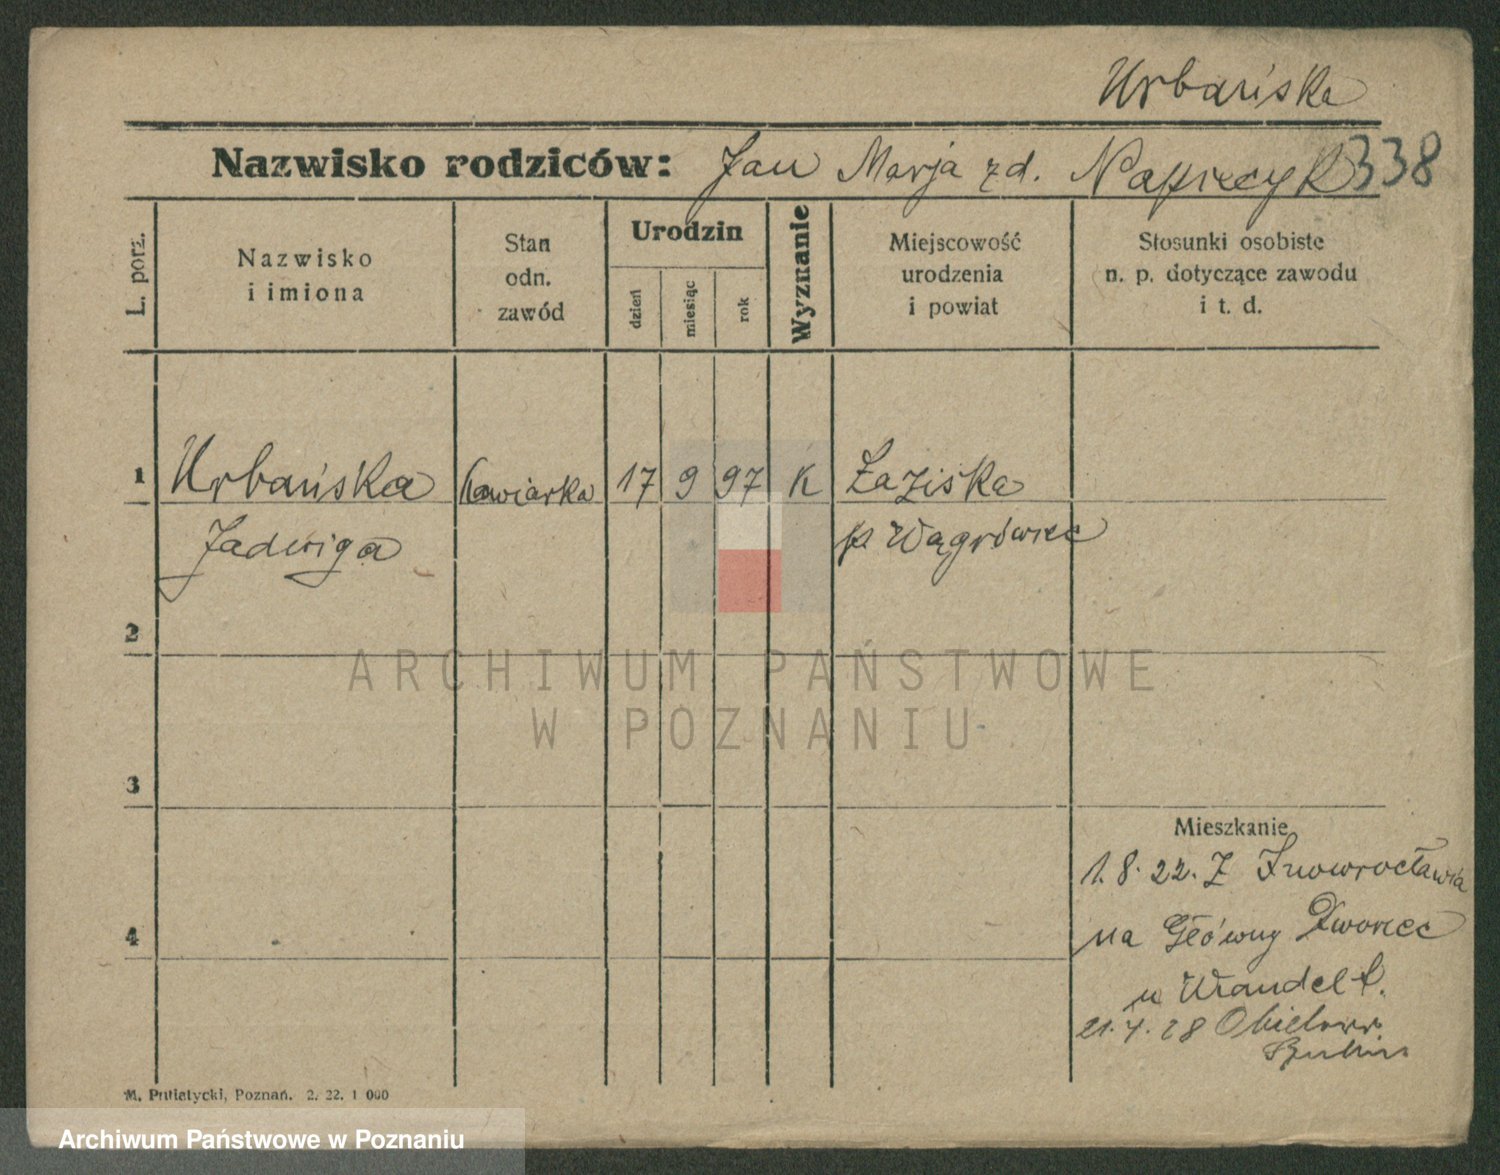 Urbańska
Nazwisko rodziców: Jan Marja zd. Napiecyk 338
L. porz.
Nazwisko
i imiona
Stan
odn.
zawód
Urodzin
dzień
miesiąc
rok
Wyznanie
Miejscowość
urodzenia
i powiat
Stosunki osobiste
n. p. dotyczące zawodu
i t. d.
1 Urbańska kawiarka 17 9 97 K Łaziska
Jadwiga p. Wągrówiec
2
3
4
ARCHIWUM PAŃSTWOWE
W POZNANIU
Mieszkanie
1. 8. 22. Z Inowrocławia
na Główny Dworzec
u Wiandelt.
21.4.28
M. Putiatycki, Poznań. 2. 22. 1 000
Archiwum Państwowe w Poznaniu